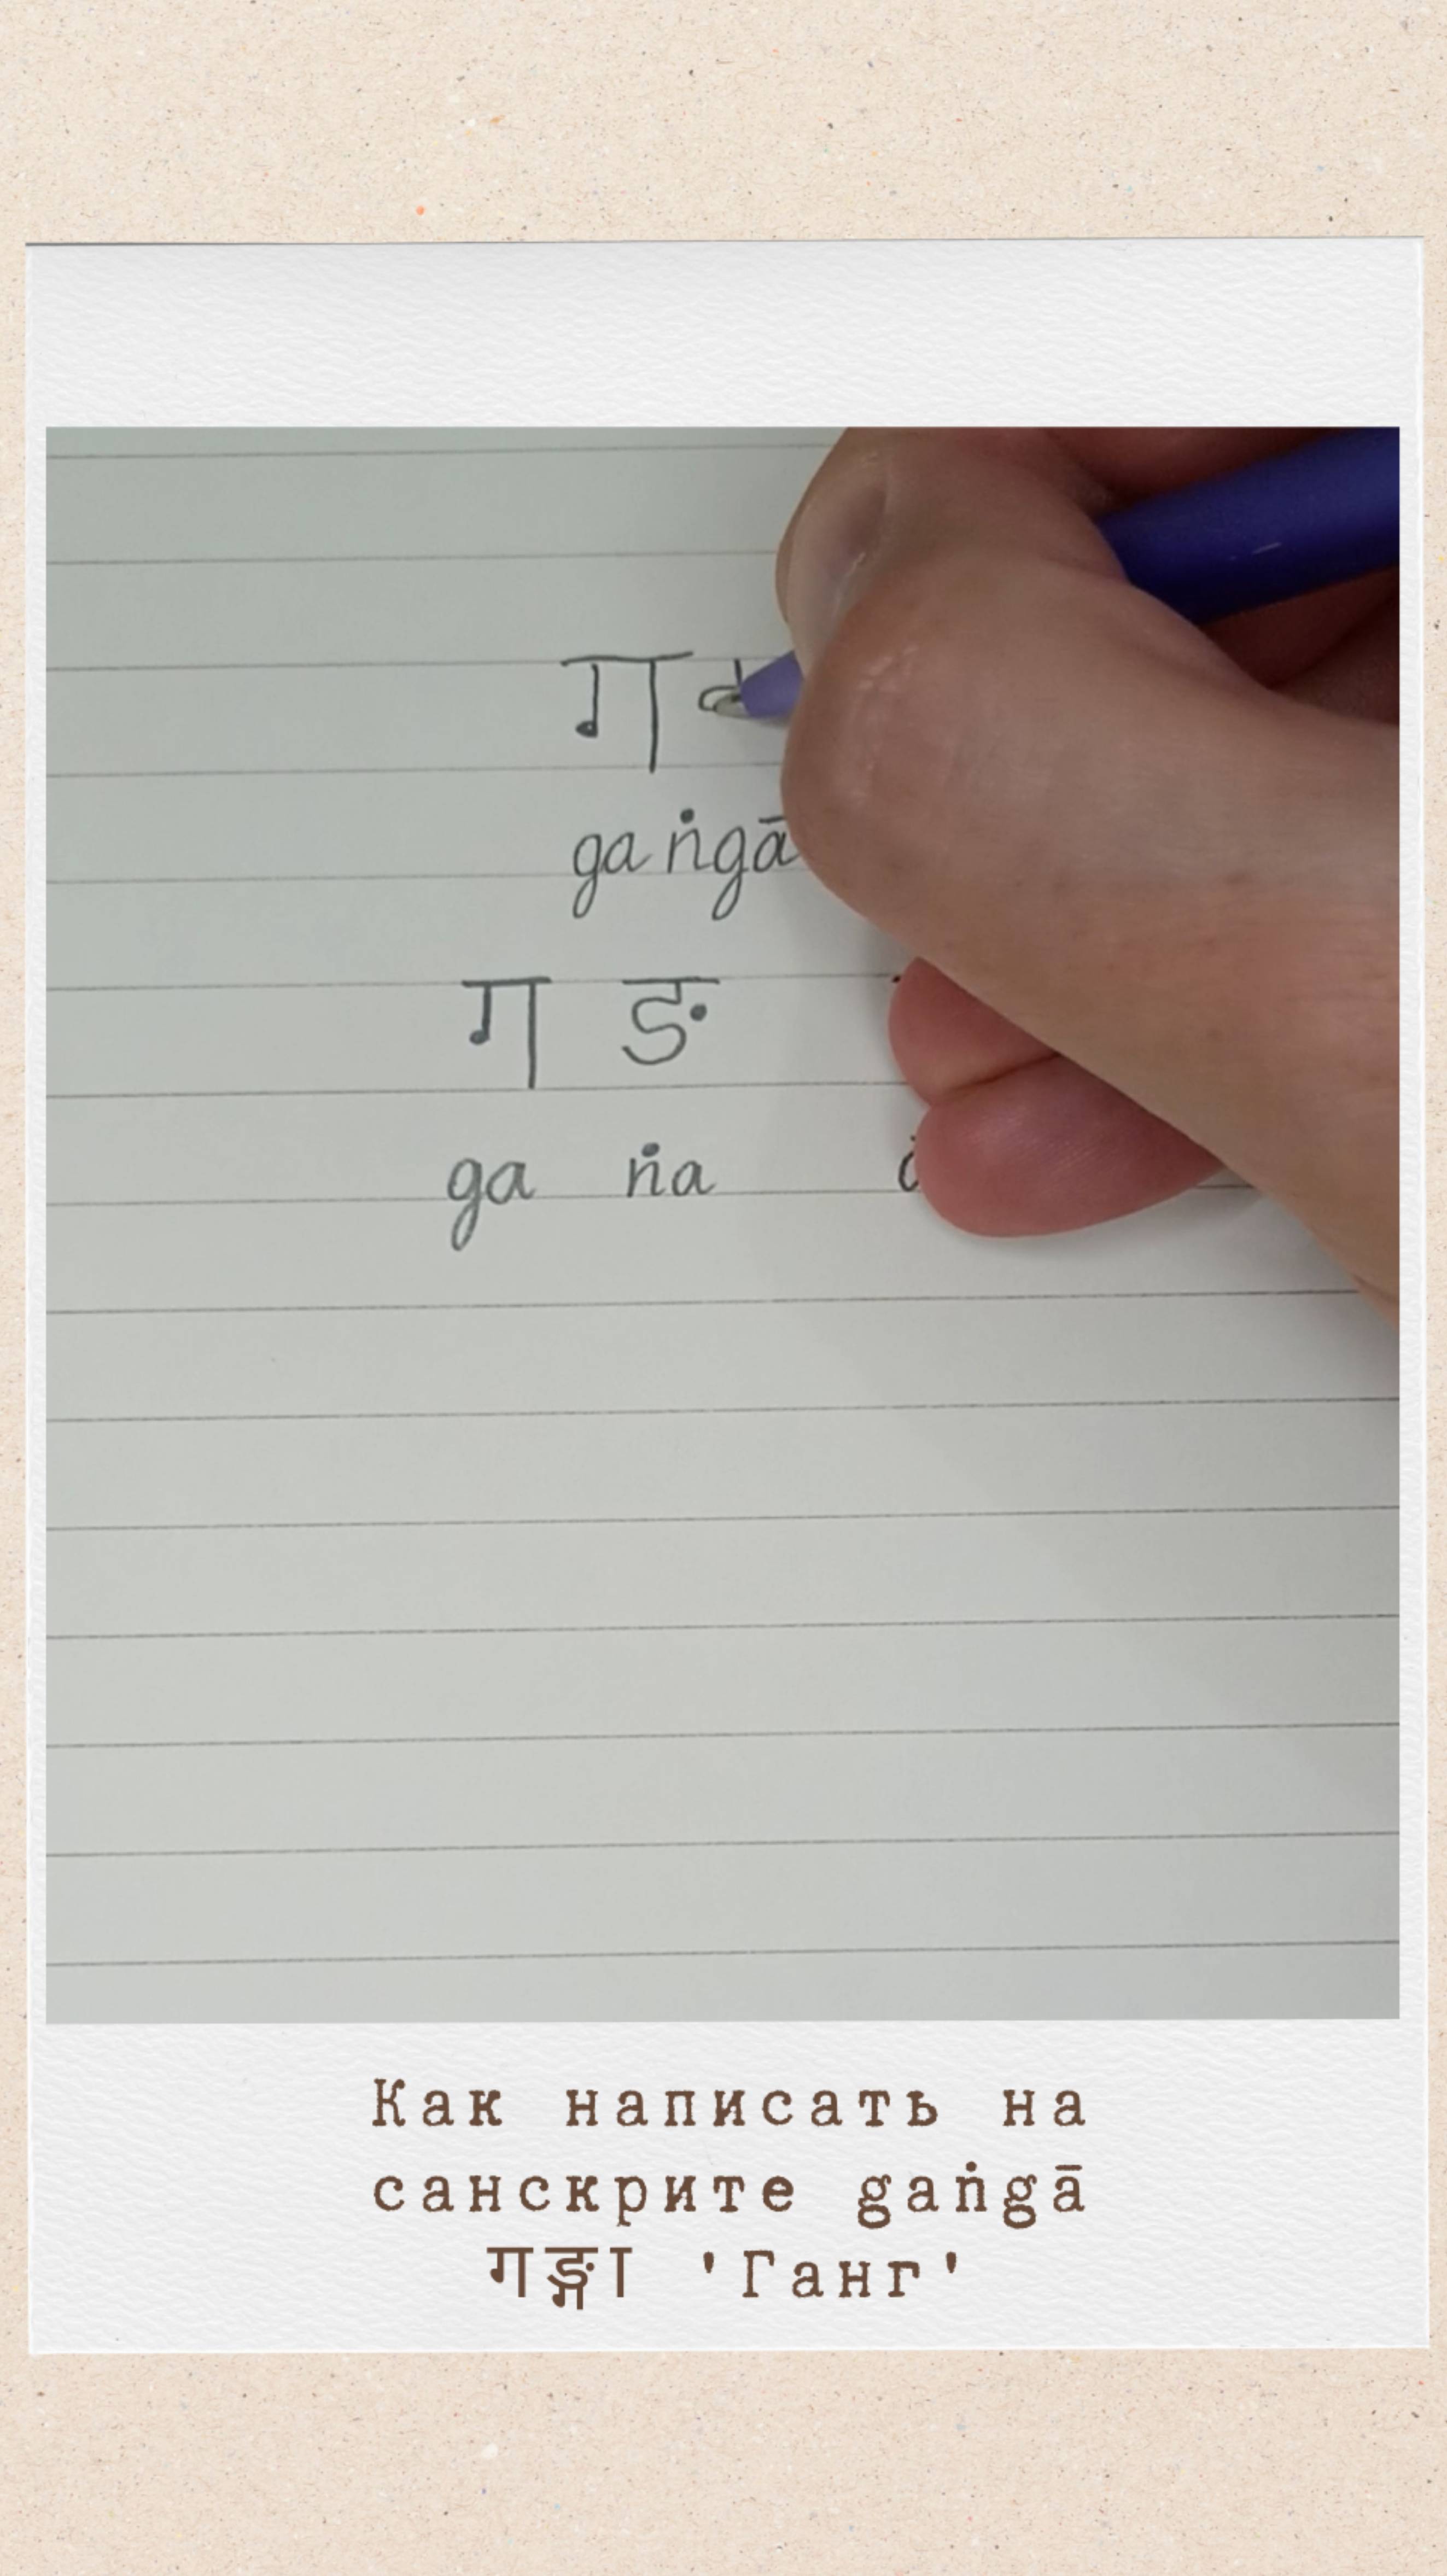 ग
gaṅgā
ग ङ
ga ṅa
Как написать на
санскрите gaṅgā
गङ्गा 'Ганг'